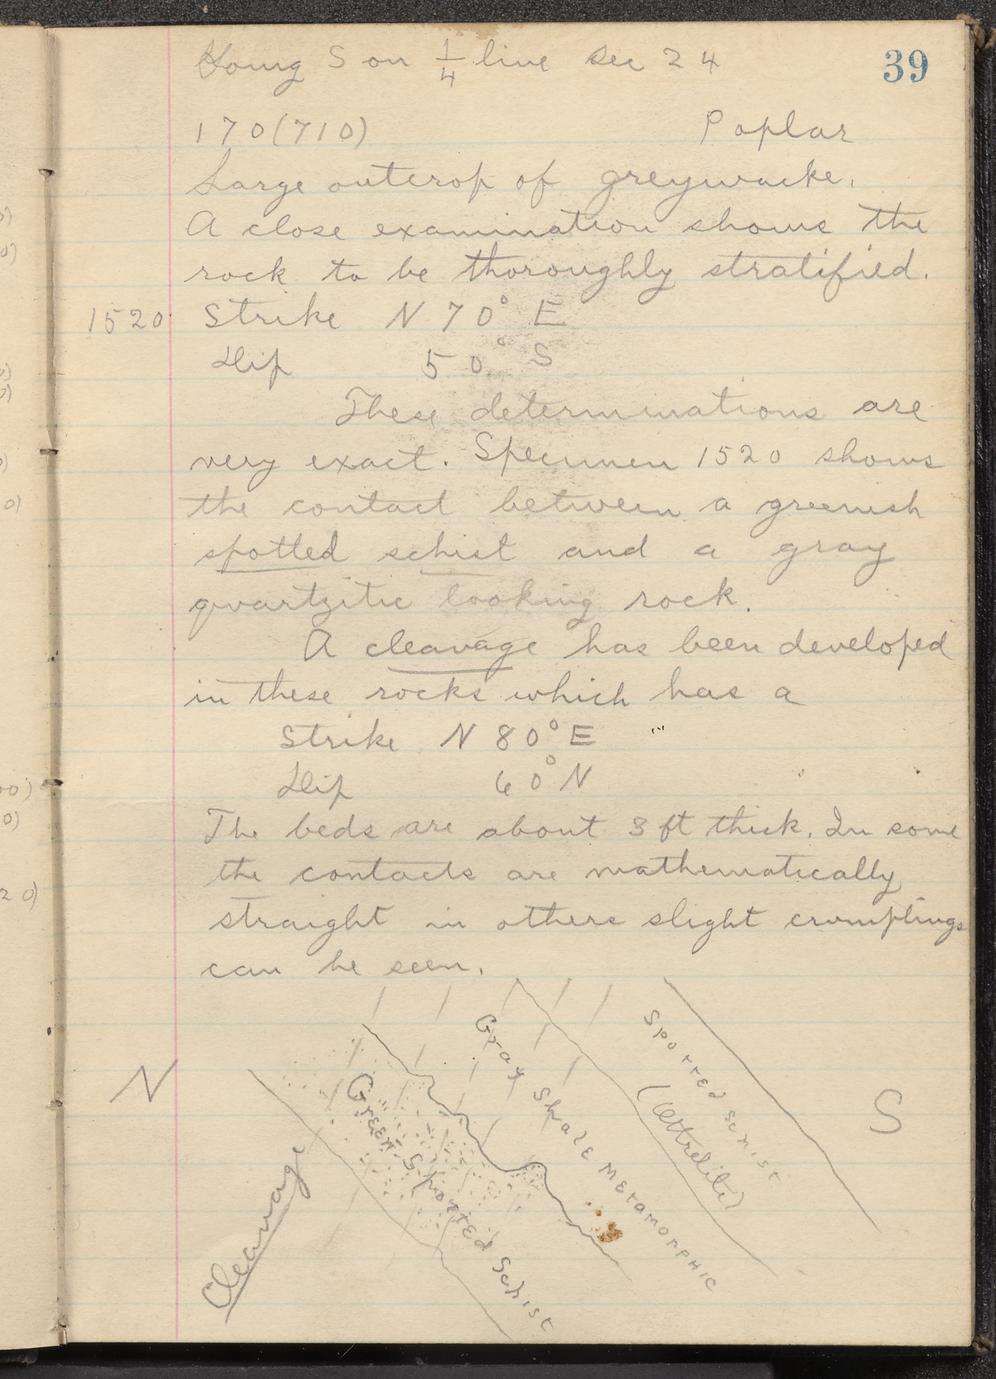 39
Going S on 1/4 line Sec 24
170(710) Poplar
Large outcrop of greywacke.
A close examination shows the
rock to be thoroughly stratified.
1520 Strike N 70° E
Dip 50° S
These determinations are
very exact. Specimen 1520 shows
the contact between a greenish
spotted schist and a gray
quartzitic looking rock.
A cleavage has been developed
in these rocks which has a
Strike N 80° E
Dip 60° N
The beds are about 3 ft thick. In some
the contacts are mathematically
straight in others slight crumplings
can be seen.
N
S
Cleavage
Green Spotted Schist
Gray Shale Metamorphic
Spotted schist
(Ottrelite)
0)
0)
0)
0)
0)
20)